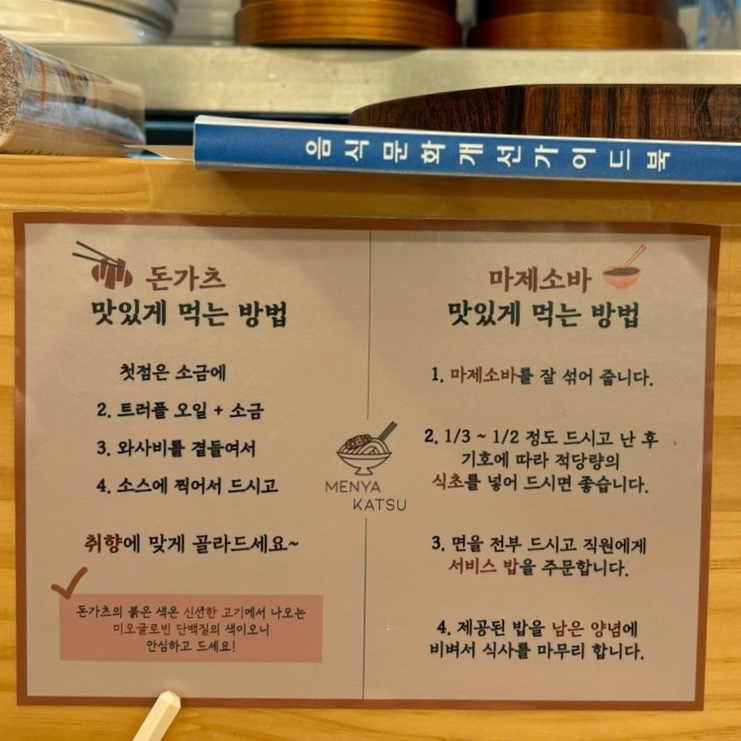 음식문화개선가이드북
돈가츠
맛있게 먹는 방법
첫점은 소금에
2. 트러플 오일 + 소금
3. 와사비를 곁들여서
4. 소스에 찍어서 드시고
취향에 맞게 골라드세요~
돈가츠의 붉은 색은 신선한 고기에서 나오는
미오글로빈 단백질의 색이오니
안심하고 드세요!
MENYA
KATSU
마제소바
맛있게 먹는 방법
1. 마제소바를 잘 섞어 줍니다.
2. 1/3 ~ 1/2 정도 드시고 난 후
기호에 따라 적당량의
식초를 넣어 드시면 좋습니다.
3. 면을 전부 드시고 직원에게
서비스 밥을 주문합니다.
4. 제공된 밥을 남은 양념에
비벼서 식사를 마무리 합니다.